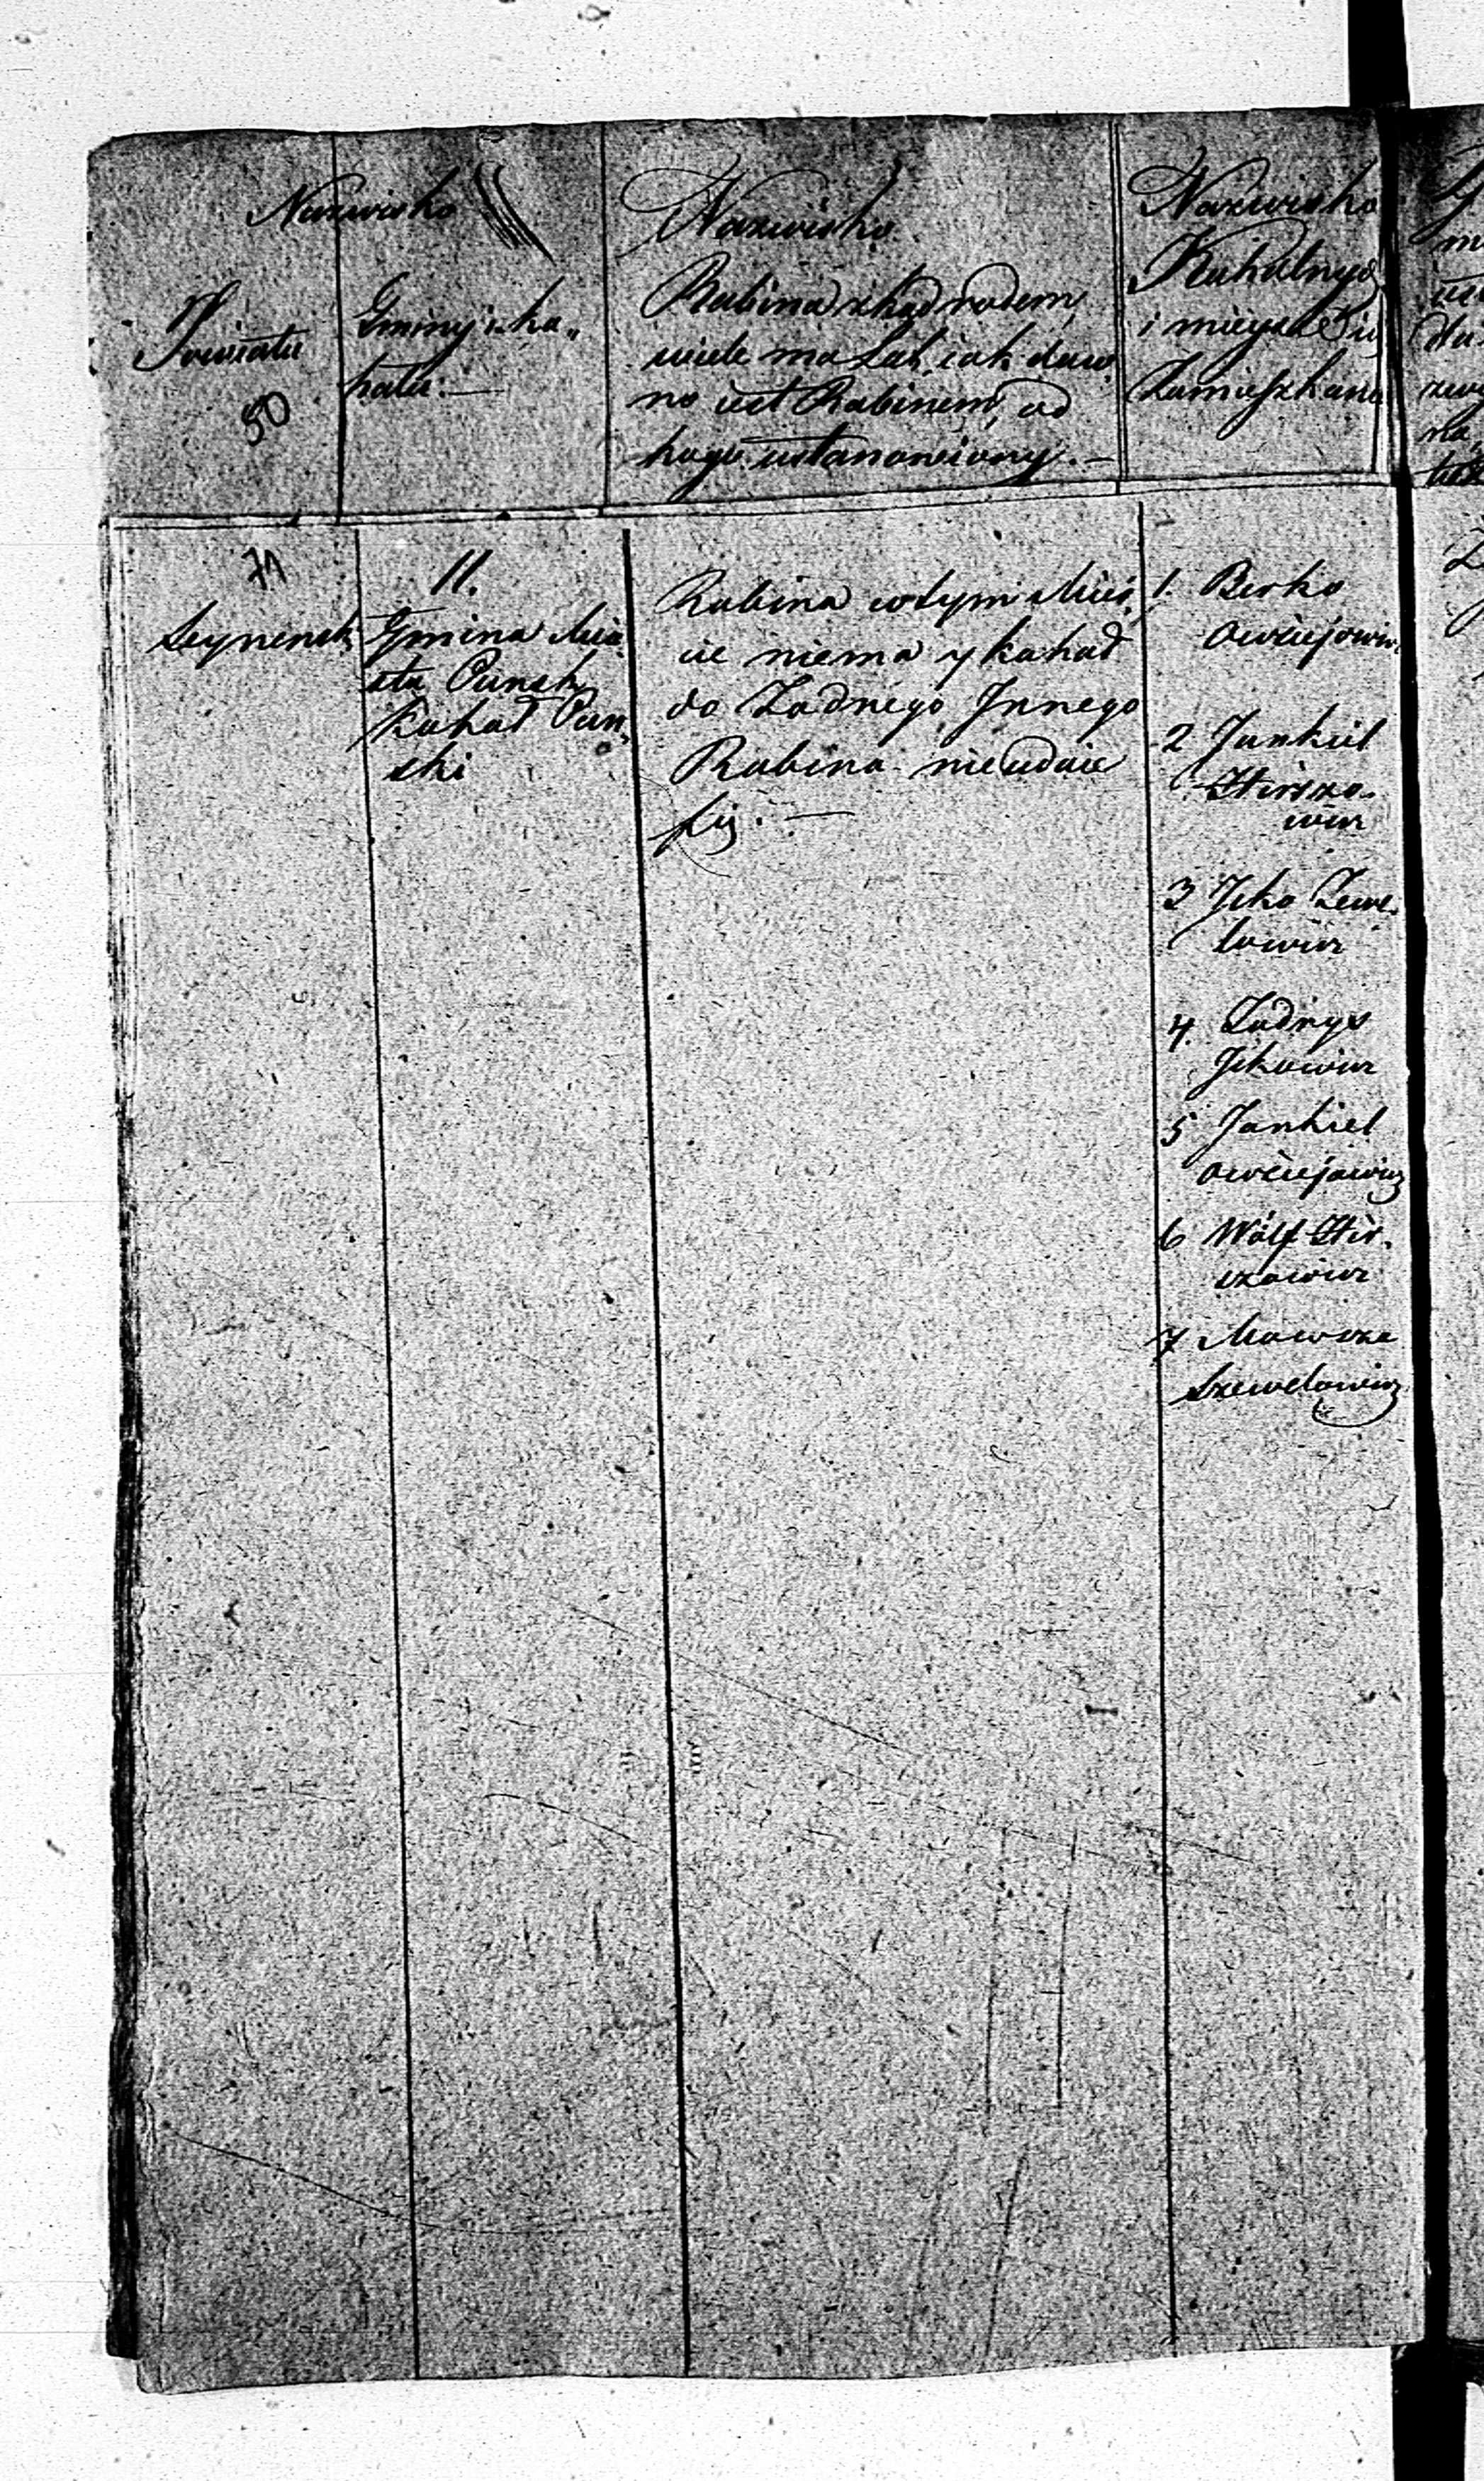 Nazwisko
Powiatu
50
Gminy i ka„
hału. —
Nazwisko
Rabina zkąd rodem,
wiele ma Lat, iak daw
no iest Rabinem, od
kogo ustanowiony. —
Nazwisko
Kahalnych
i mieysce Ich
Zamieszkania
71
Seynensk
11.
Gmina Mia
sta Punsk
Kahał Pun
ski
Rabina w tym Mieś
cie niema y kahał
do Żadnego Innego
Rabina nieudaie
się. —
1. Berko
Owsiejowicz
2 Jankiel
Hirszo-
wicz
3 Icko Zewe-
lowicz
4. Zadnyx
Ickowicz
5 Jankiel
Owsiejowicz
6 Wolf Hir-
szowicz
7 Mowsza
Szewelowicz